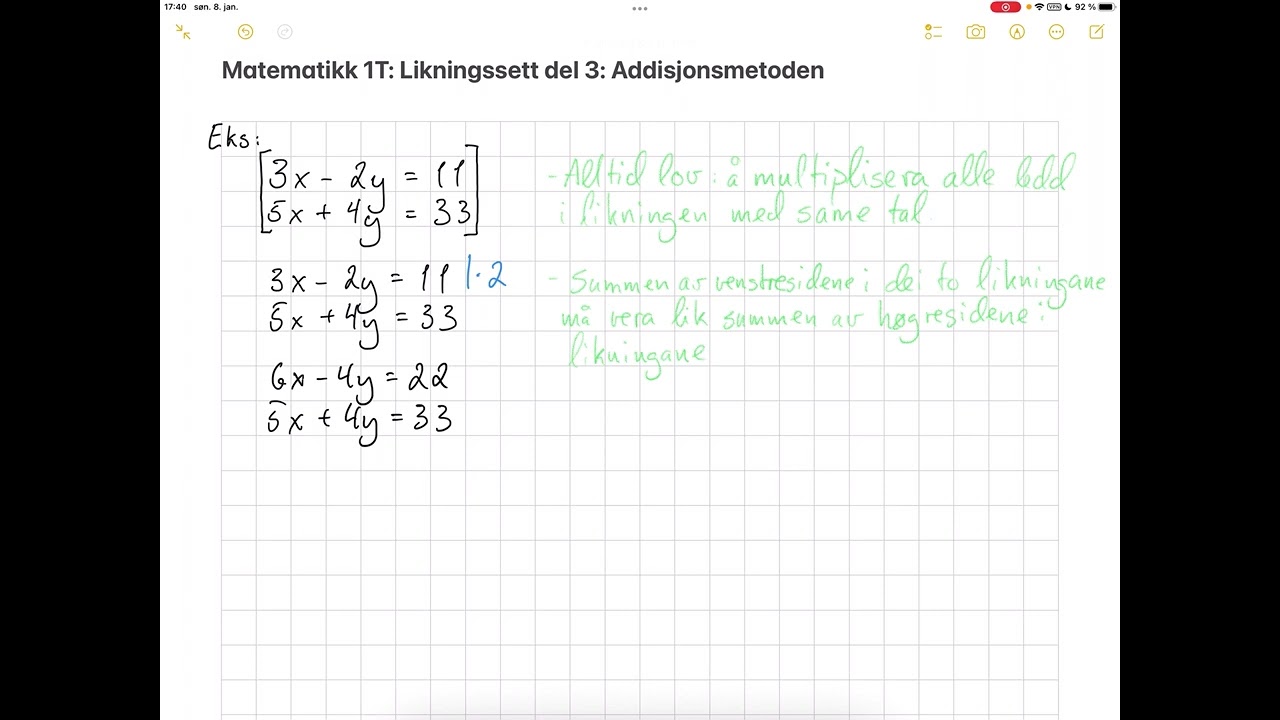 17:40 søn. 8. jan.
VPN 92 %
Matematikk 1T: Likningssett del 3: Addisjonsmetoden
Eks:
3x - 2y = 11
5x + 4y = 33
3x - 2y = 11 |·2
5x + 4y = 33
6x - 4y = 22
5x + 4y = 33
- Alltid lov: å multiplisera alle ledd
i likningen med same tal
- Summen av venstresidene i dei to likningane
må vera lik summen av høgresidene i
likningane